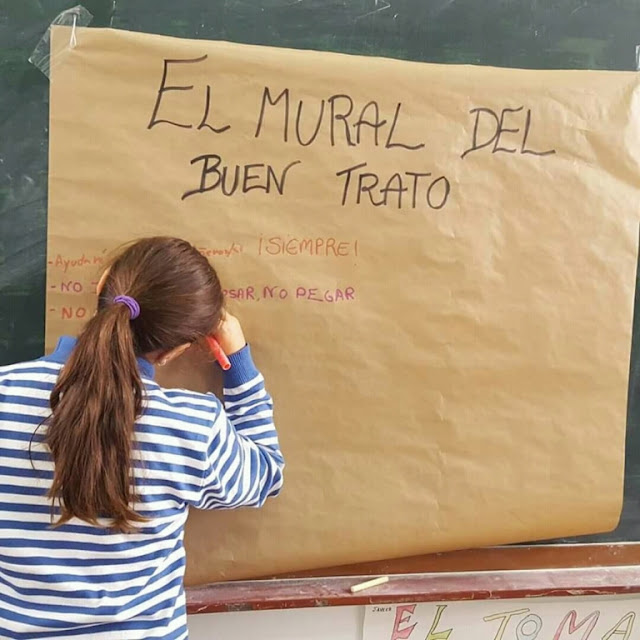 EL MURAL DEL
BUEN TRATO
- Ayudar ¡SIEMPRE!
- NO NO PEGAR
- NO
EL TOMA